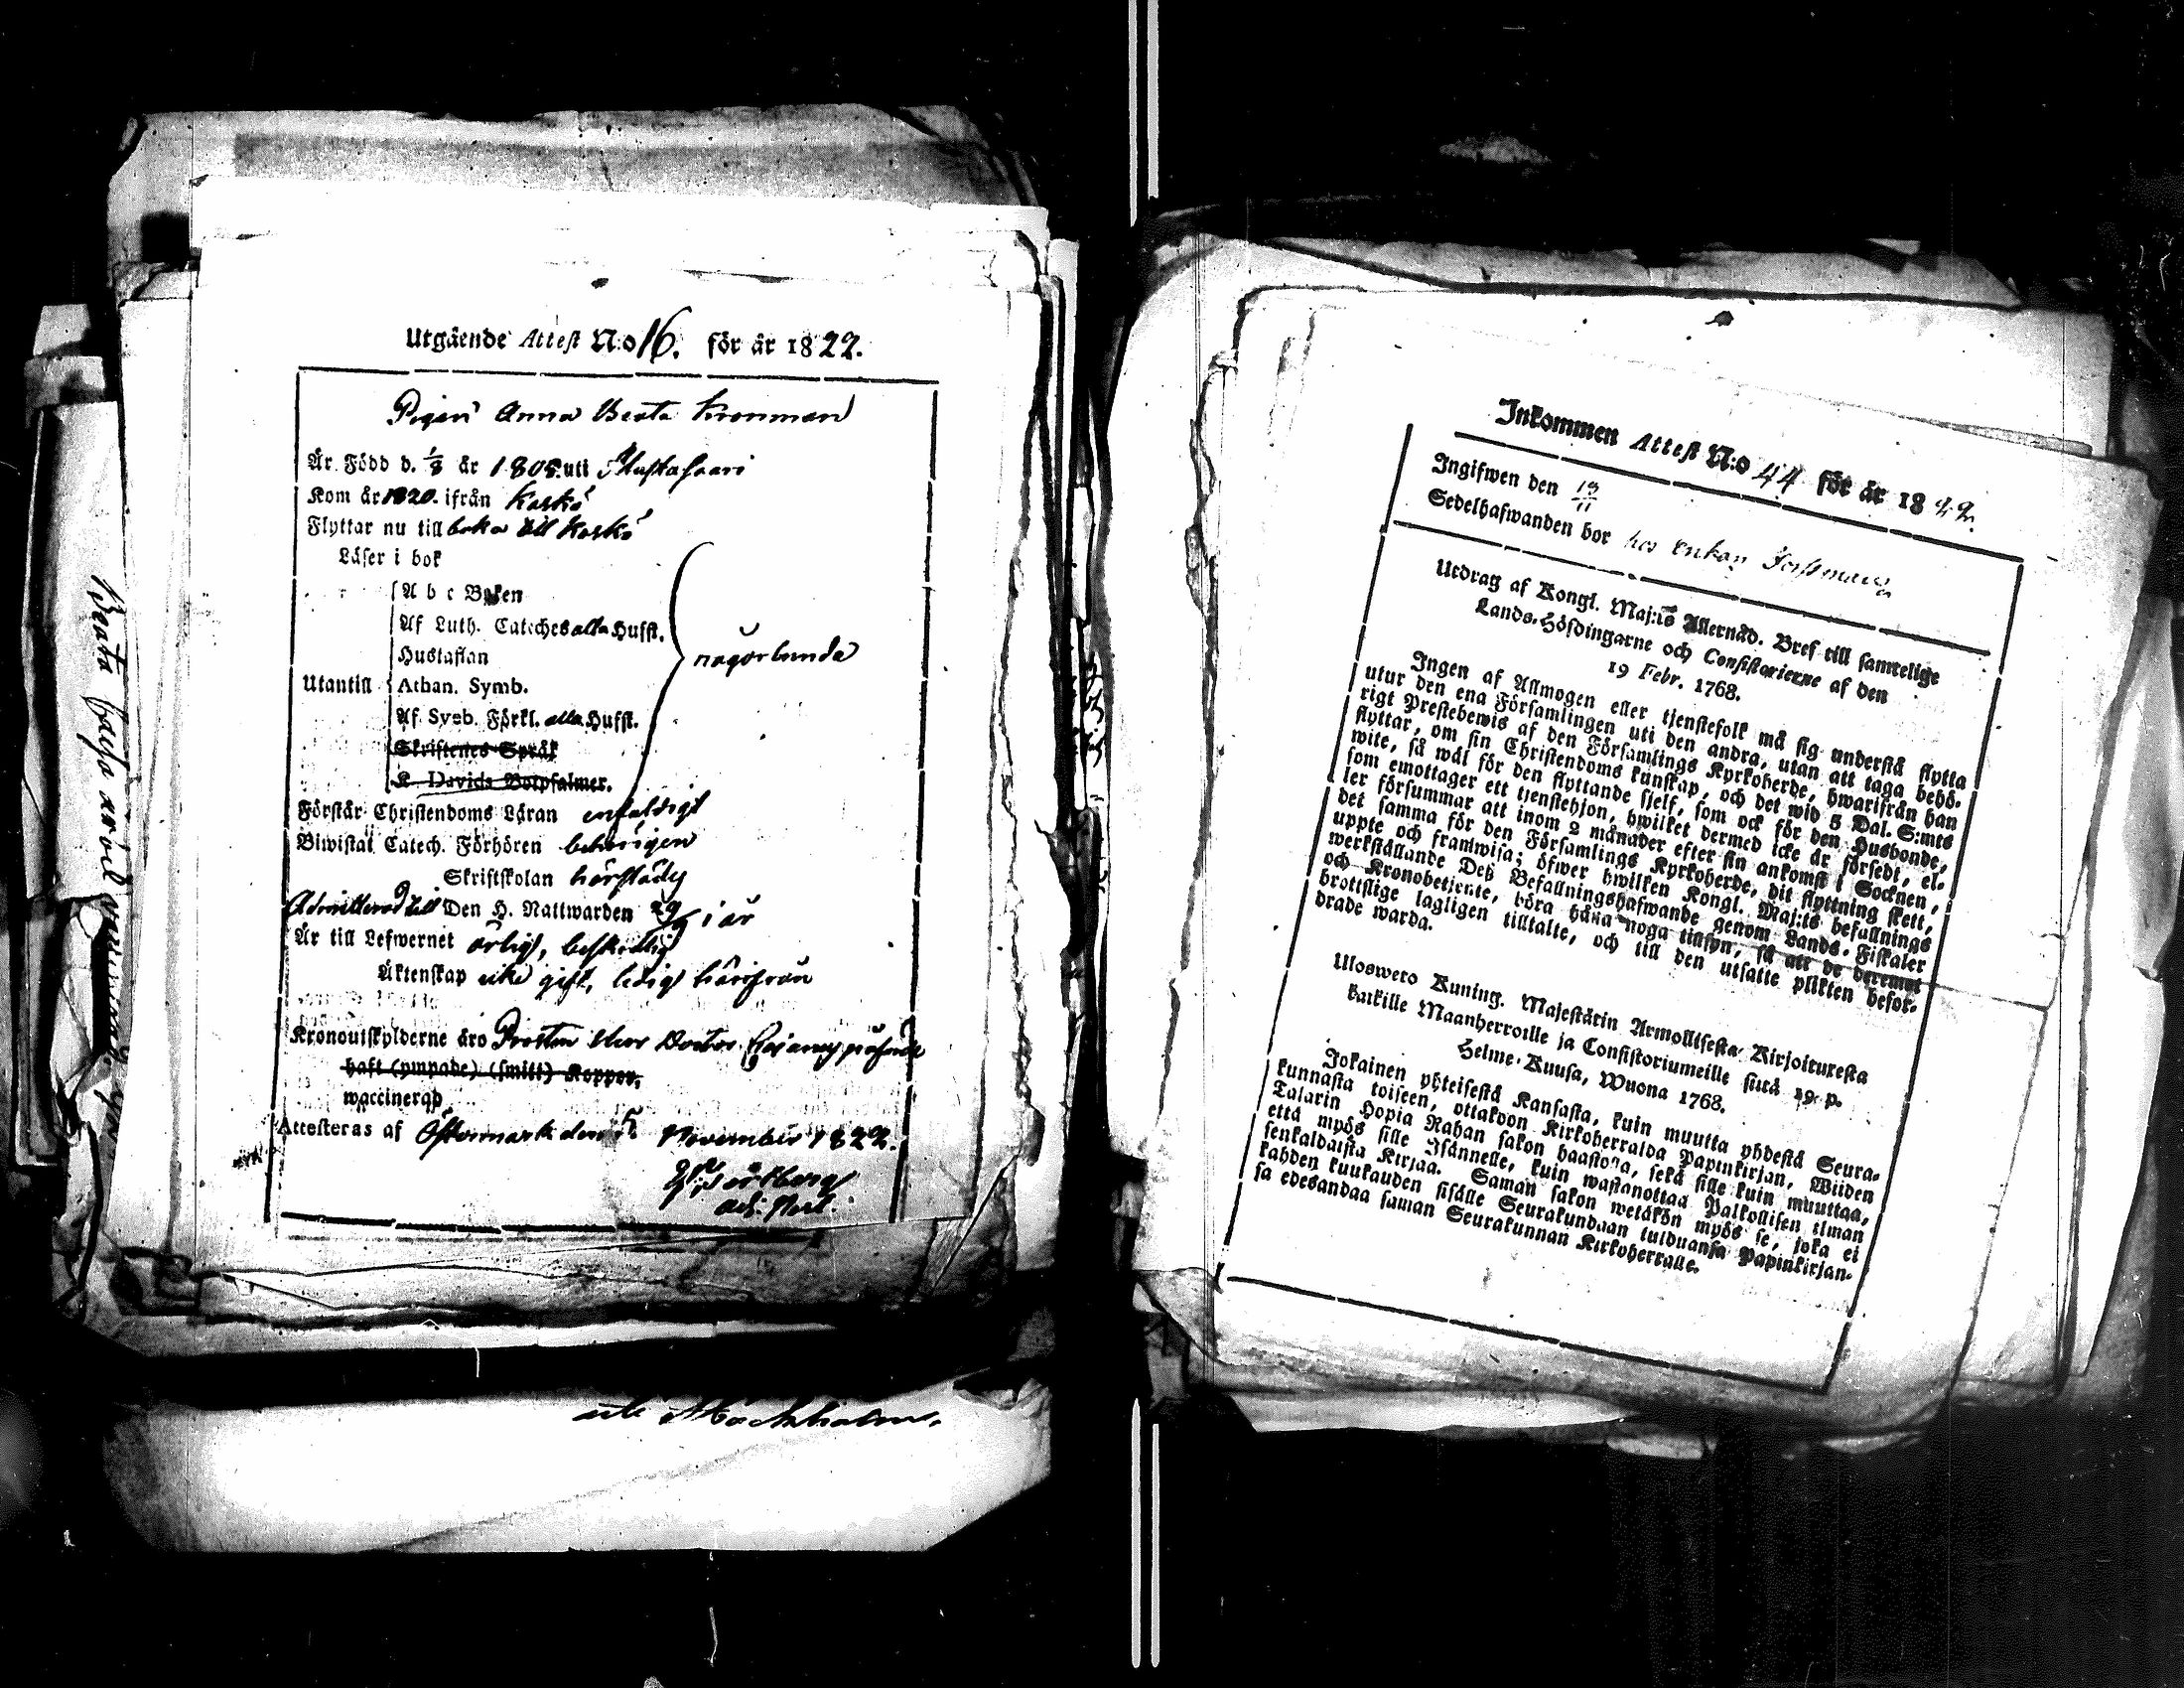 Utgående Attest N:o 16. för år 1822.
Pigan Anna Beata Kronman
Är Född d. 1/8 år 1805. uti Mustasaari
Kom år 1820. ifrån Kaskö
Flyttar nu till baka till Kaskö
Läser i bok
A b c Boken
Af Luth. Cateches alla Hufst.
Hustaflan
någorlunda
Utantill Athan. Symb.
Af Sveb. Förkl. alla Hufst.
Skriftenes Språk
K. Davids Botpsalmer.
Förstår Christendoms Läran enfaldigt
Biwistat Catech. Förhören behörigen
Skriftskolan härstädes
Admitterad till Den H. Nattwarden 29/9 i år
Är till Lefwernet ärligt, beskedlig
Äktenskap icke gift, ledig härifrån
Kronoutskylderne äro Prosten Herr Doctor
haft (ympade) (smitt) Koppor,
waccinerad
Attesteras af Östermark den 5. November 1822.
adj. Past.
Beata
Inkommen Attest N:o 44 för år 1822.
Ingifwen den 19/11
Sedelhafwanden bor hos Enkan
Utdrag af Kongl. Maj:ts Allernåd. Bref till samtelige
Lands-Höfdingarne och Consistorierne af den
19 Febr. 1768.
Ingen af Allmogen eller tjenstefolk må sig understå flytta
utur den ena Församlingen uti den andra, utan att taga behö-
rigt Prestebewis af den Församlings Kyrkoherde, hwarifrån han
flyttar, om sin Christendoms kunskap, och det wid 5 Dal. S:mts
wite, så wäl för den flyttande sjelf, som ock för den Husbonde,
som emottager ett tjenstehjon, hwilket dermed icke är försedt, el-
ler försummar att inom 2 månader efter sin ankomst i Socknen,
det samma för den Församlings Kyrkoherde, dit flyttning skett,
uppte och framwisa; öfwer hwilken Kongl. Maj:ts befallnings
werkställande Deß Befallningshafwande genom Lands-Fiskaler
och Kronobetjente, böra hålla noga tillsyn, så att de deremot
brottslige lagligen tilltalte, och till den utsatte plikten befor-
drade warda.
Ulosweto Kuning. Majestätin Armollisesta Kirjoituresta
kaikille Maanherroille ja Consistoriumeille siitä 19. p.
Helme-Kuusa, Wuona 1768.
Jokainen yhteisestä Kansasta, kuin muutta yhdestä Seura-
kunnasta toiseen, ottakoon Kirkoherralda Papinkirjan, Wiiden
Talarin Hopia Rahan sakon haastolla, sekä sille kuin muuttaa,
että myös sille Isännelle, kuin wastanottaa Palkollisen ilman
senkaldaista Kirjaa. Saman sakon wetäkön myös se, joka ei
kahden kuukauden sisälle Seurakundaan tulduansa Papinkirjan-
sa edesandaa saman Seurakunnan Kirkoherralle.